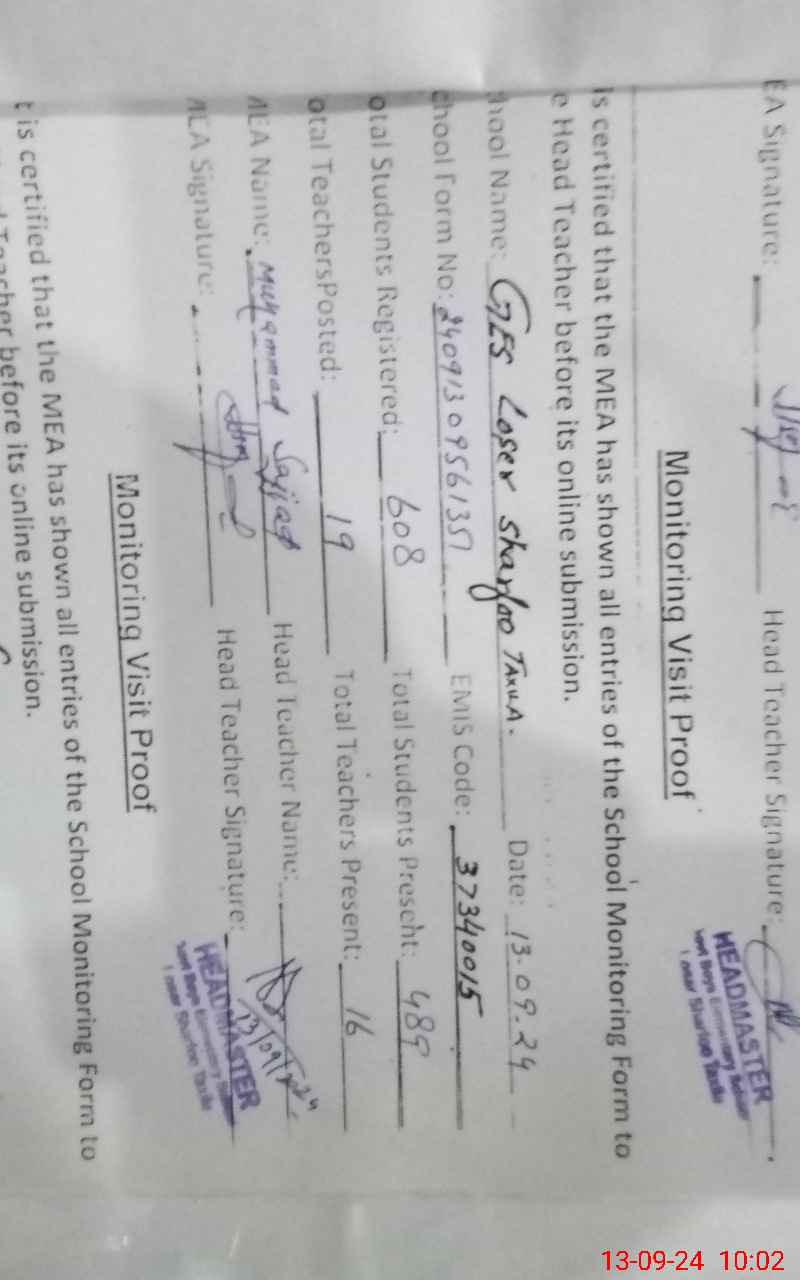 EA Signature: Head Teacher Signature:
HEADMASTER
Monitoring Visit Proof
is certified that the MEA has shown all entries of the School Monitoring Form to
e Head Teacher before its online submission.
hool Name: GES Loser Sharfoo TAXILA. Date: 13.09.24
chool Form No: 2409130956 1351 EMIS Code: 37340015
otal Students Registered: 608 Total Students Present: 489
otal TeachersPosted: 19 Total Teachers Present: 16
MEA Name: Muhammad Sajjad Head Teacher Name:
MEA Signature: Head Teacher Signature: 13/09/2024
HEADMASTER
Monitoring Visit Proof
t is certified that the MEA has shown all entries of the School Monitoring Form to
Teacher before its online submission.
13-09-24 10:02